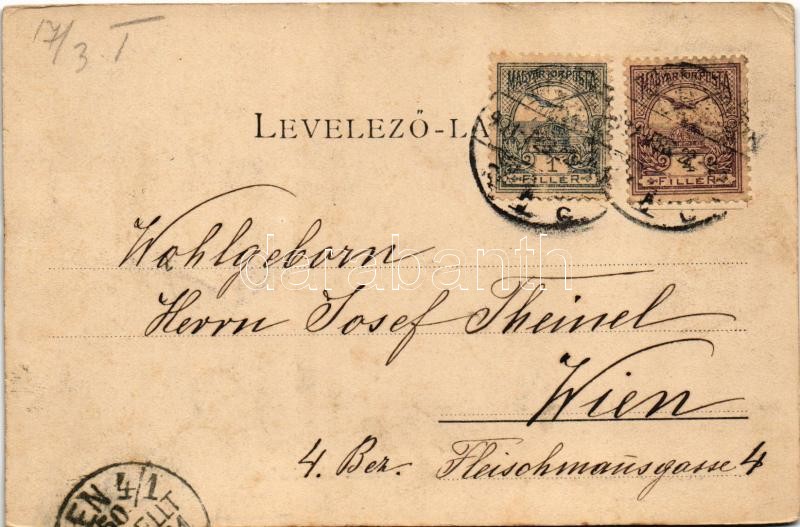 17/3 I
LEVELEZŐ-LA
MAGYAR KIR. POSTA
1
FILLER
MAGYAR KIR. POSTA
4
FILLER
C
Wohlgeborn
Herrn Josef Theinel
Wien
4. Bez. Fleischmañsgasse 4
darabanth
EN 4/1
60
ELLT